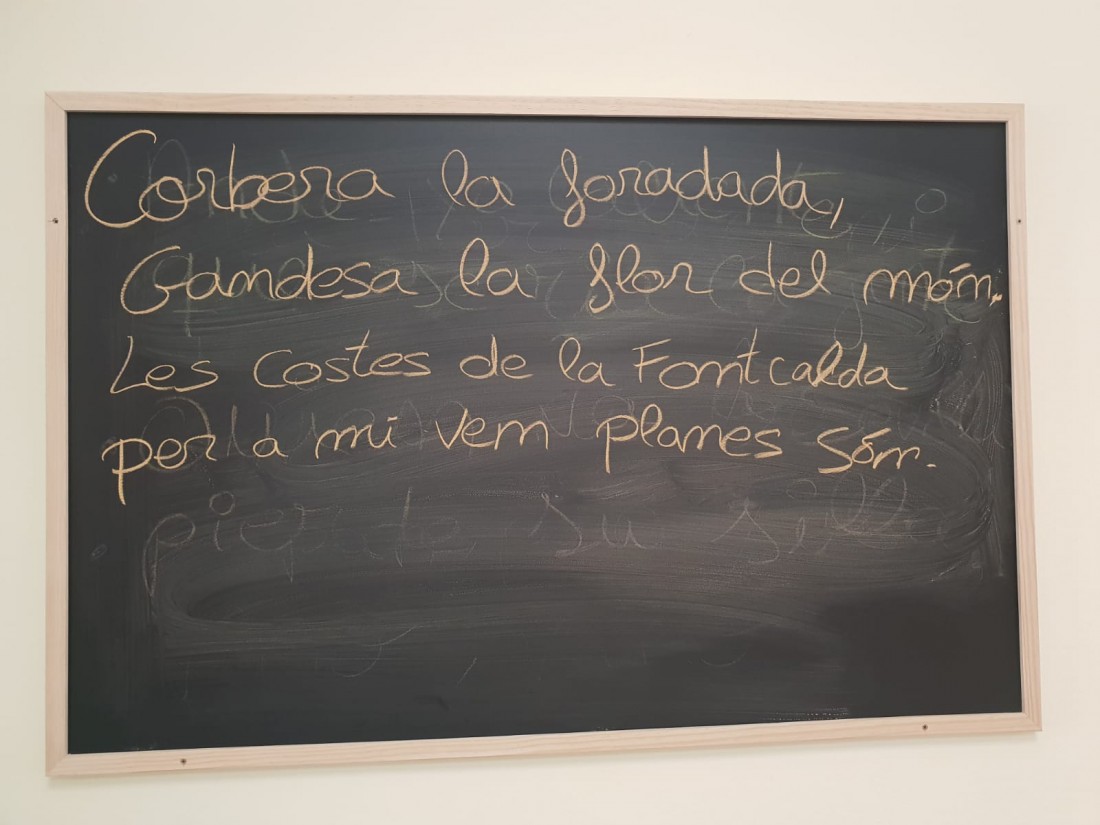 Corbera la foradada,
Gandesa la flor del món.
Les costes de la Fontcalda
per a mi ven planes són.
pierde su silla